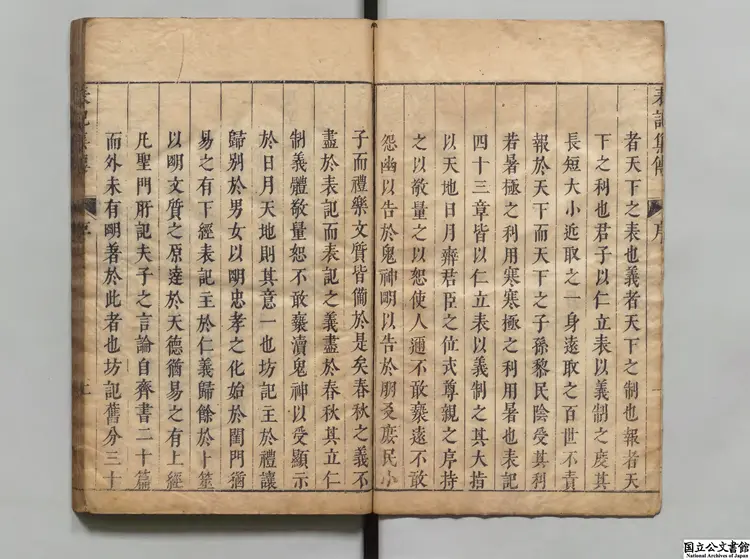 者天下之表也義者天下之制也報者天
下之利也君子以仁立表以義制之度其
長短大小近取之一身遠取之百世不責
報於天下而天下之子孫黎民陰受其利
若暑極之利用寒寒極之利用暑也表記
四十三章皆以仁立表以義制之其大指
以天地日月辨君臣之位式尊親之序持
之以敬量之以恕使人邇不敢褻遠不敢
怨幽以告於鬼神明以告於朋友庶民小
子而禮樂文質皆備於是矣春秋之義不
盡於表記而表記之義盡於春秋其立仁
制義體敬量恕不敢褻瀆鬼神以受顯示
於日月天地則其意一也坊記主於禮讓
歸别於男女以明忠孝之化始於閨門猶
易之有下經表記主於仁義歸餘於卜筮
以明文質之原達於天德猶易之有上經
凡聖門所記夫子之言論自齊書二十篇
而外未有明著於此者也坊記舊分三十
表記集傳
序
一
表記集傳
序
國立公文書館
National Archives of Japan